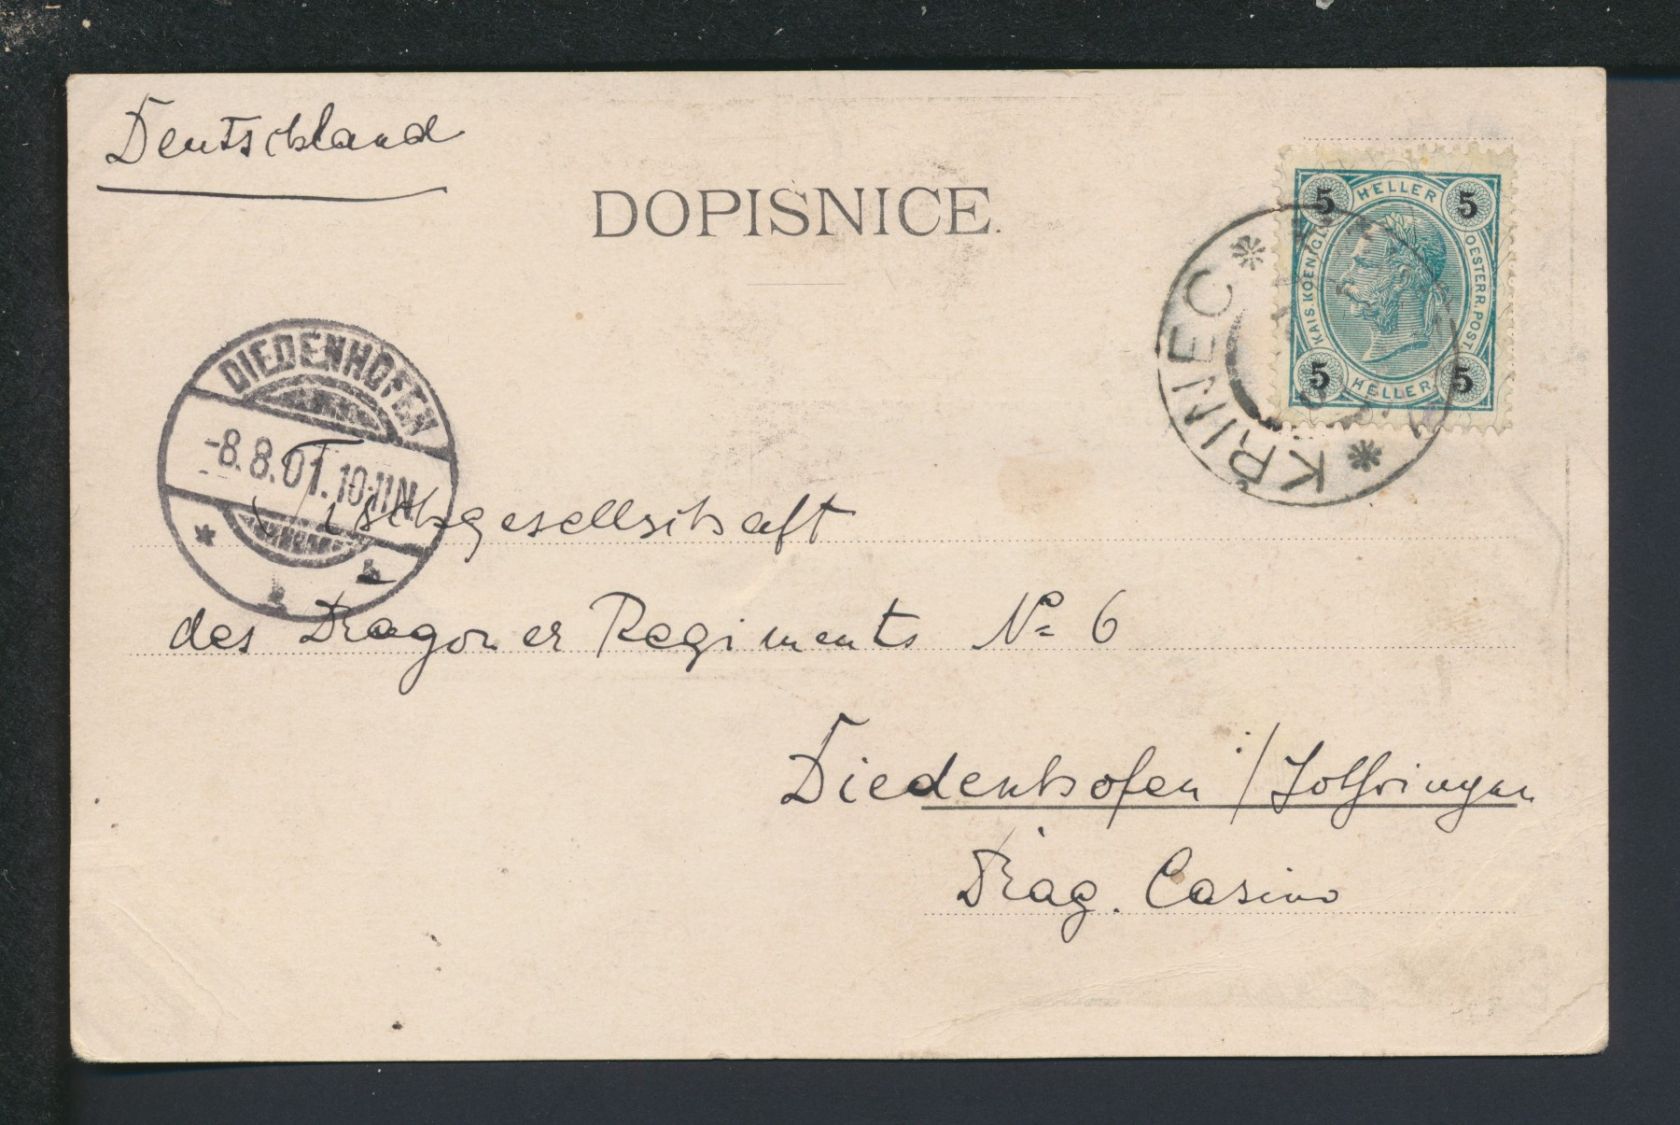 Deutschland
DOPISNICE.
5 HELLER 5
KAIS. KOENIGL. OESTERR. POST.
5 HELLER 5
KŘINEC
DIEDENHOFEN
-8.8.01.10-11N.
Tischgesellschaft
des Dragoner Regiments No 6
Diedenhofen /Lothringen
Drag. Casino